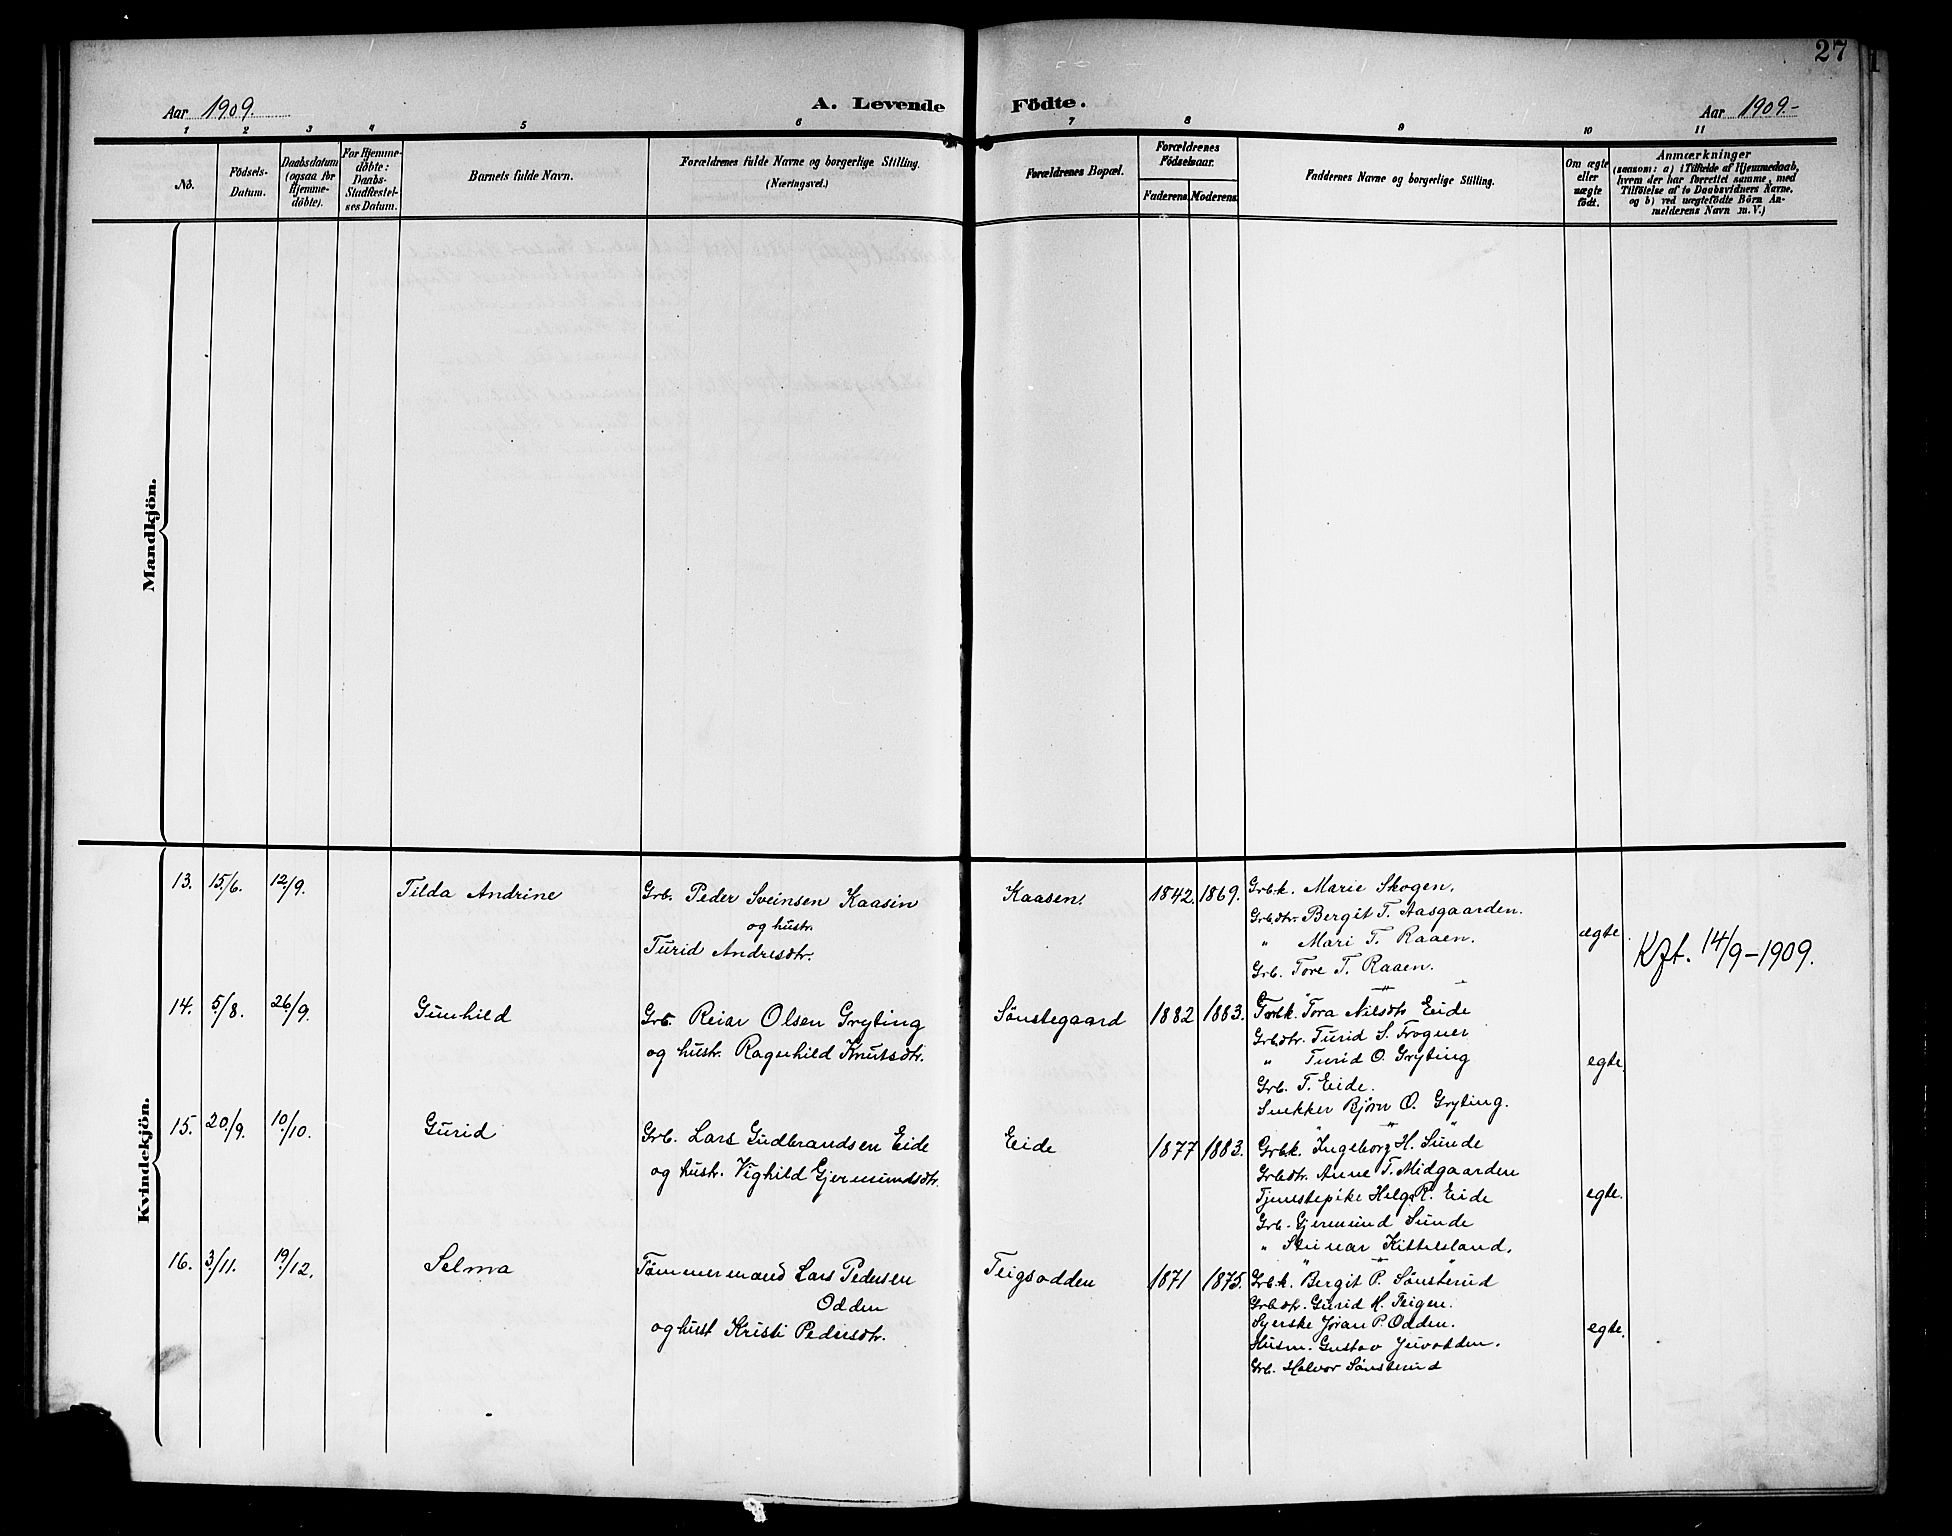 27
Aar 1909.
A. Levende Födte.
Aar 1909.-
1 2 3 4 5 6 7 8 9 10 11
No.
Födsels-Datum.
Daabsdatum (ogsaa for Hjemmedöbte).
For Hjemmedöbte: Daabs-Stadfæstelses Datum.
Barnets fulde Navn.
Forældrenes fulde Navne og borgerlige Stilling.
(Næringsvei.)
Forældrenes Bopæl.
Forældrenes Födselsaar.
Faderens.
Moderens.
Faddernes Navne og borgerlige Stilling.
Om ægte eller uægte födt.
Anmærkninger
(saasom: a) i Tilfælde af Hjemmedaab,
hvem der har forrettet samme, med
Tilföielse af to Daabsvidners Navne.
og b) ved uægtefödte Börn An-
melderens Navn m. V.)
Mandkjön.
Kvindekjön.
13. 15/6. 12/9. Tilda Andrine
Grb. Peder Sveinsen Kaasin
og hustr.
Turid Andresdtr.
Kaasen. 1842. 1869.
Grbk. Marie Skogen.
Grbdtr. Bergit T. Aasgaarden.
" Mari T. Raaen.
Grb. Tore T. Raaen.
ægte.
Kft. 14/9-1909.
14. 5/8. 26/9. Gunhild
Grb. Reiar Olsen Gryting
og hustr. Ragnhild Knutsdtr.
Sønstegaard 1882 1883.
Grbk. Tora Nilsdtr Eide
Grbdtr. Turid S. Frogner
" Turid O. Gryting
Grb. T. Eide.
Snekker Bjørn O. Gryting.
egte.
15. 20/9. 10/10. Gurid
Grb. Lars Gudbrandsen Eide
og hustr. Vighild Gjermundsdtr.
Eide 1877 1883.
Grbk. Ingeborg H. Sunde
Grbdtr. Anne T. Midgaarden
Tjenstepike Helga R. Eide
Grb. Gjermund Sunde
" Steinar Kittilsland.
egte.
16. 3/11. 19/12. Selma
Tømmermand Lars Pedersen
Odden
og hust Kristi Pedersdtr.
Teigsodden 1871 1875.
Grbk. Bergit P. Sønsterud
Grbdtr. Gurid H. Teigen.
Syerske Jøran P. Odden.
Husm. Gustav Juvodden.
Grb. Halvor Sønsterud
egte.